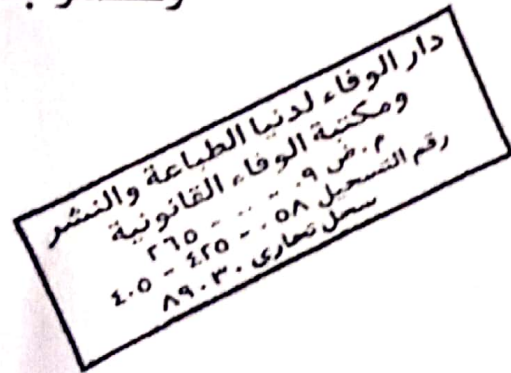 دار الوفاء لدنيا الطباعة والنشر
ومكتبة الوفاء القانونية
م.ض ٠٩ - ٠٠ - ٢٦٥
رقم التسجيل ٠٥٨ - ٤٢٥ - ٤٠٥
سجل تجارى ٨٩٠٣٠